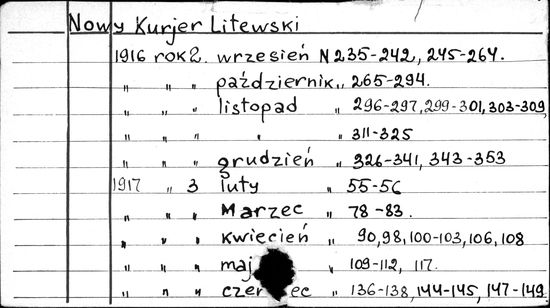 Nowy Kurjer Litewski
1916 rok 2. wrzesień N 235-242, 245-264.
" " " październik " 265-294.
" " " listopad " 296-297, 299-301, 303-309
" " " " " 311-325
" " " grudzień " 326-341, 343-353
1917 " 3 luty " 55-56
" " " Marzec " 78-83.
" " " kwiecień " 90, 98, 100-103, 106, 108
" " " maj " 109-112, 117.
" " " czer ec " 136-138, 144-145, 147-149